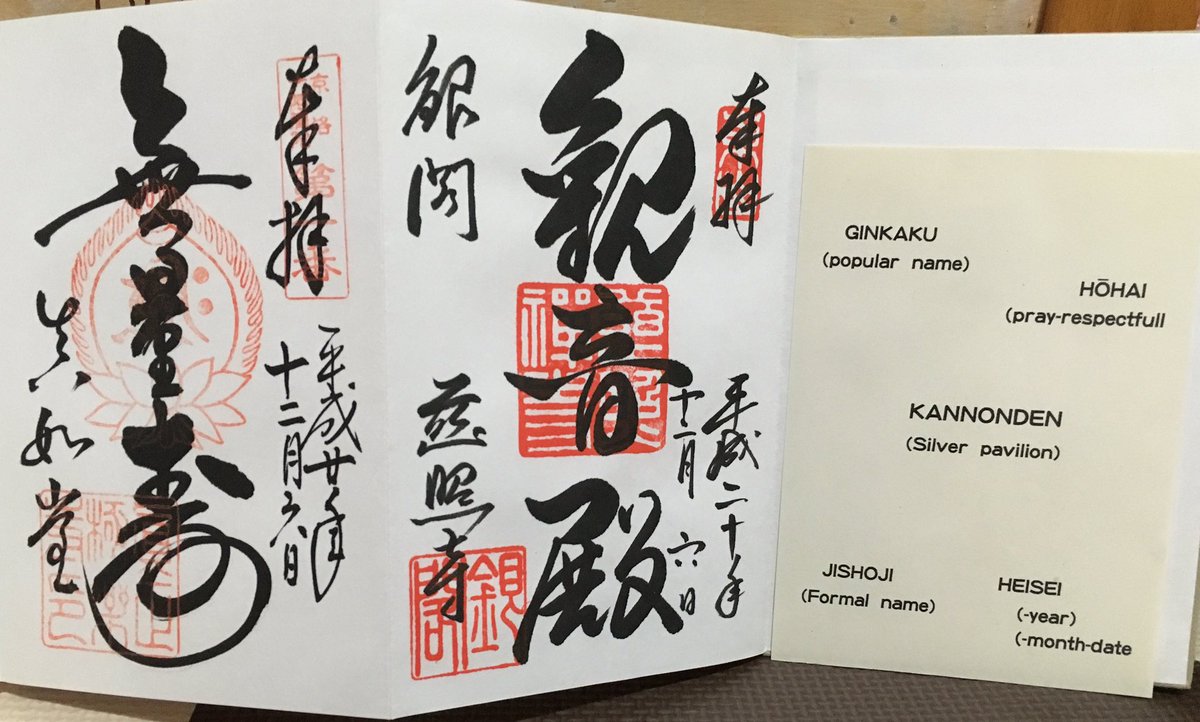 奉拝
平成廿年
十二月六日
無量壽
真如堂
奉拝
平成二十年
十二月六日
觀音殿
銀閣
慈照寺
銀閣
GINKAKU
(popular name)
HŌHAI
(pray-respectfull
KANNONDEN
(Silver pavilion)
JISHOJI
(Formal name)
HEISEI
(-year)
(-month-date